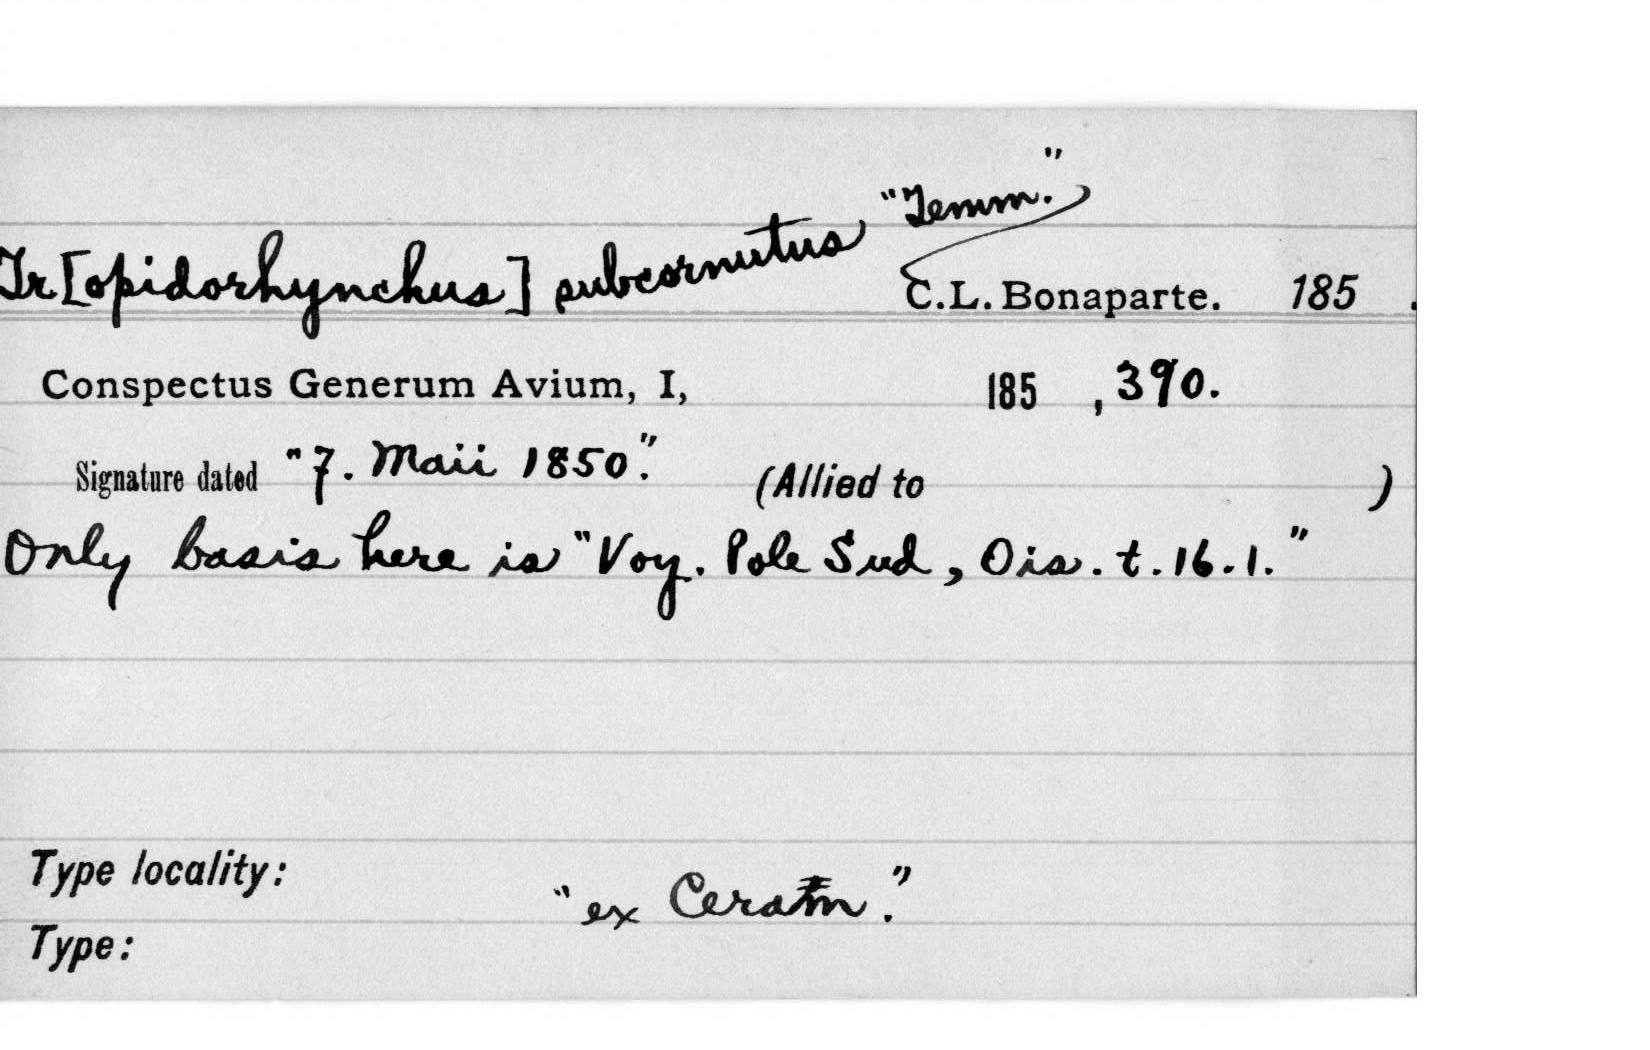 "Temm."
Tr[opidorhynchus] subcornutus C.L. Bonaparte. 185 .
Conspectus Generum Avium, I, 185 , 390.
Signature dated "7. Maii 1850." (Allied to )
Only basis here is "Voy. Pole Sud, Ois. t.16.1."
Type locality: "ex Ceram."
Type: